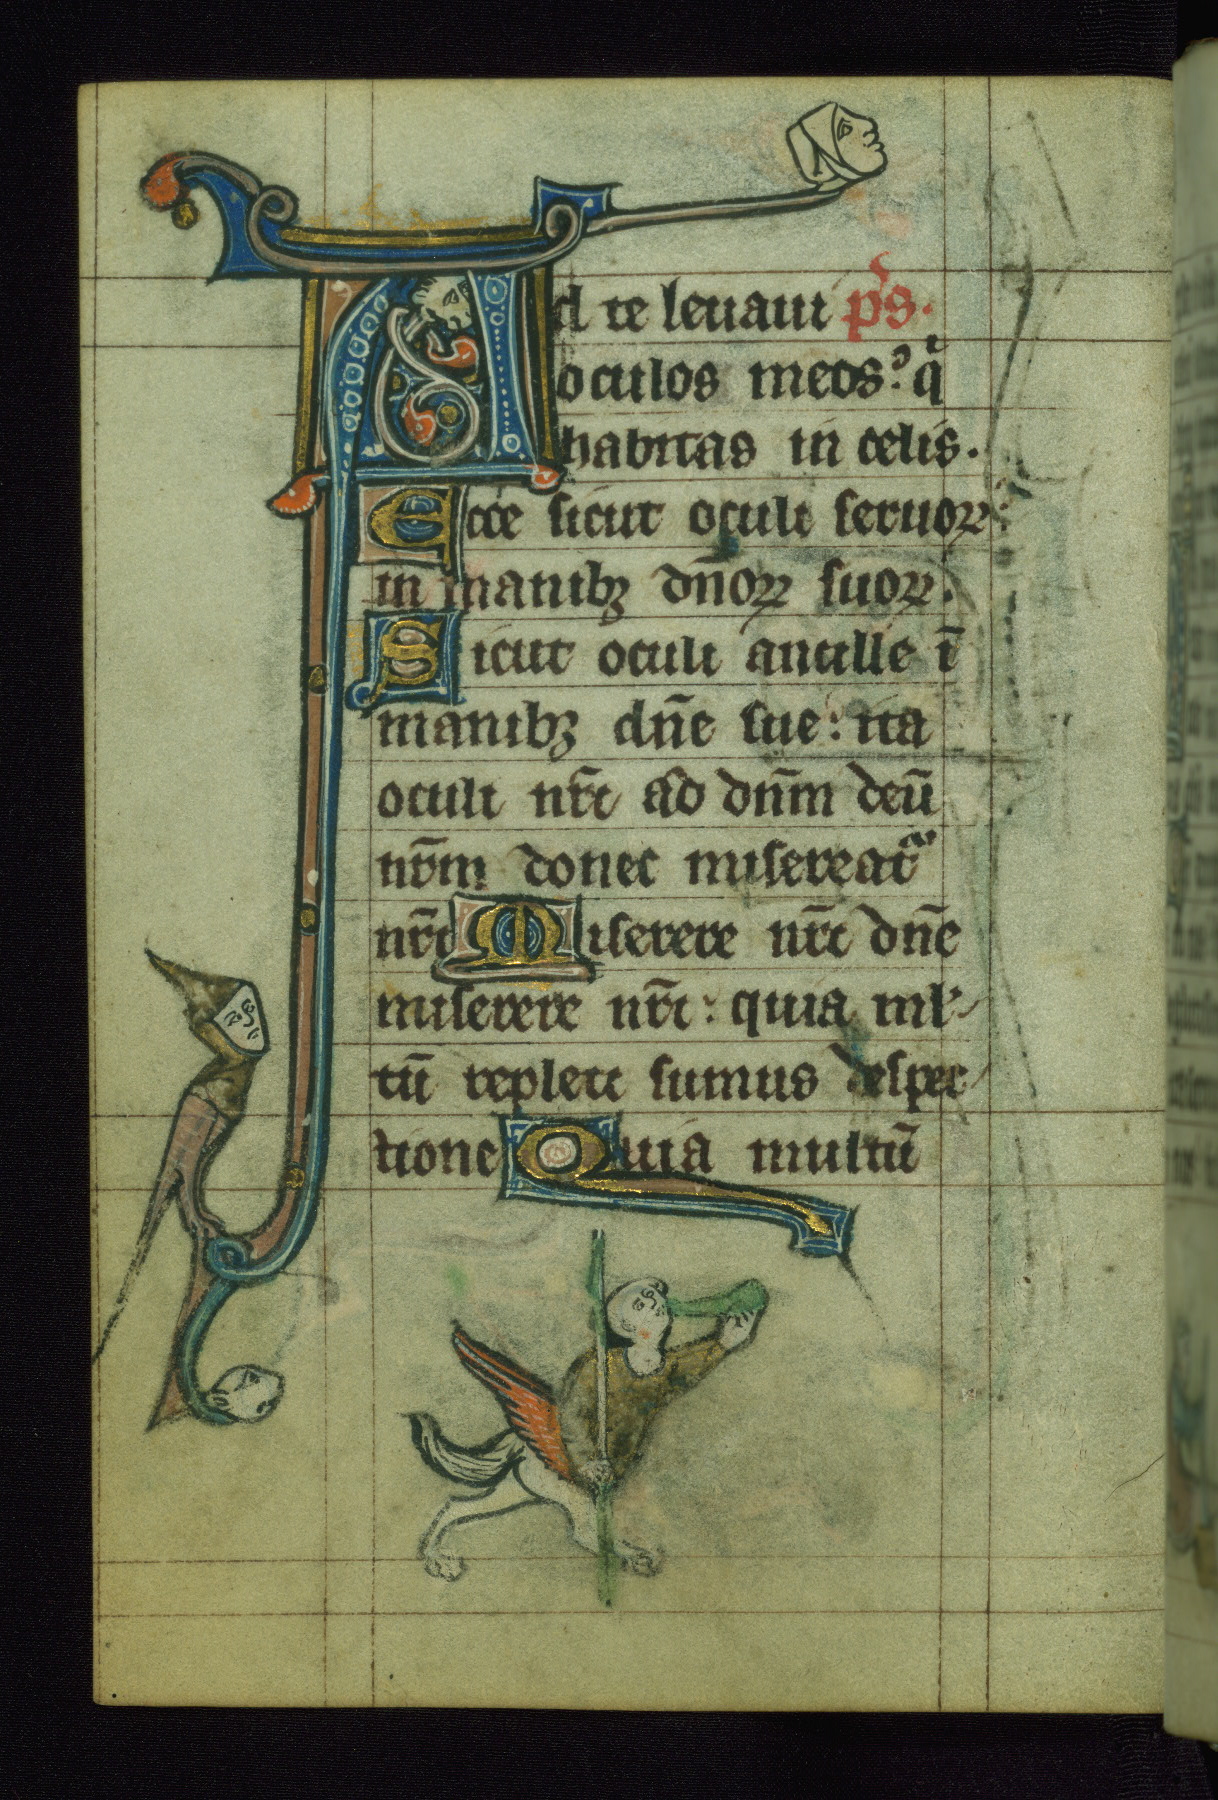 Ad te leuaui ps̄.
oculos meos? q̄
habitas in celis.
Ecce sicut oculi seruoꝝ
in manibꝫ dn̄oꝝ suoꝝ.
Sicut oculi ancille ī
manibꝫ dn̄e sue: ita
oculi nr̄i ad dn̄m deū
nr̄m donec misereat᷑
nr̄i Miserere nr̄i dn̄e
miserere nr̄i: quia ml̓
tū repleti sumus despec
tione Quia multū